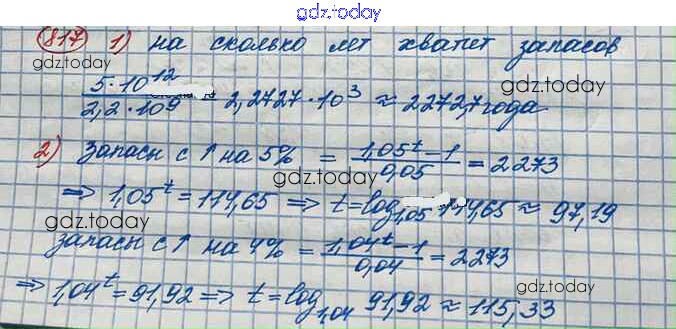 gdz.today
817 1) на сколько лет хватит запасов
gdz.today gdz.today
5·10^12 / 2,2·10^9 = 2,2727·10^3 ≈ 2272,7 года
gdz.today
2) Запасы с ↑ на 5% = (1,05^t − 1) / 0,05 = 2273
gdz.today
⇒ 1,05^t = 114,65 ⇒ t = log_1,05 114,65 ≈ 97,19
gdz.today
запасы с ↑ на 4% = (1,04^t − 1) / 0,04 = 2273
gdz.today
⇒ 1,04^t = 91,92 ⇒ t = log_1,04 91,92 ≈ 115,33
gdz.today